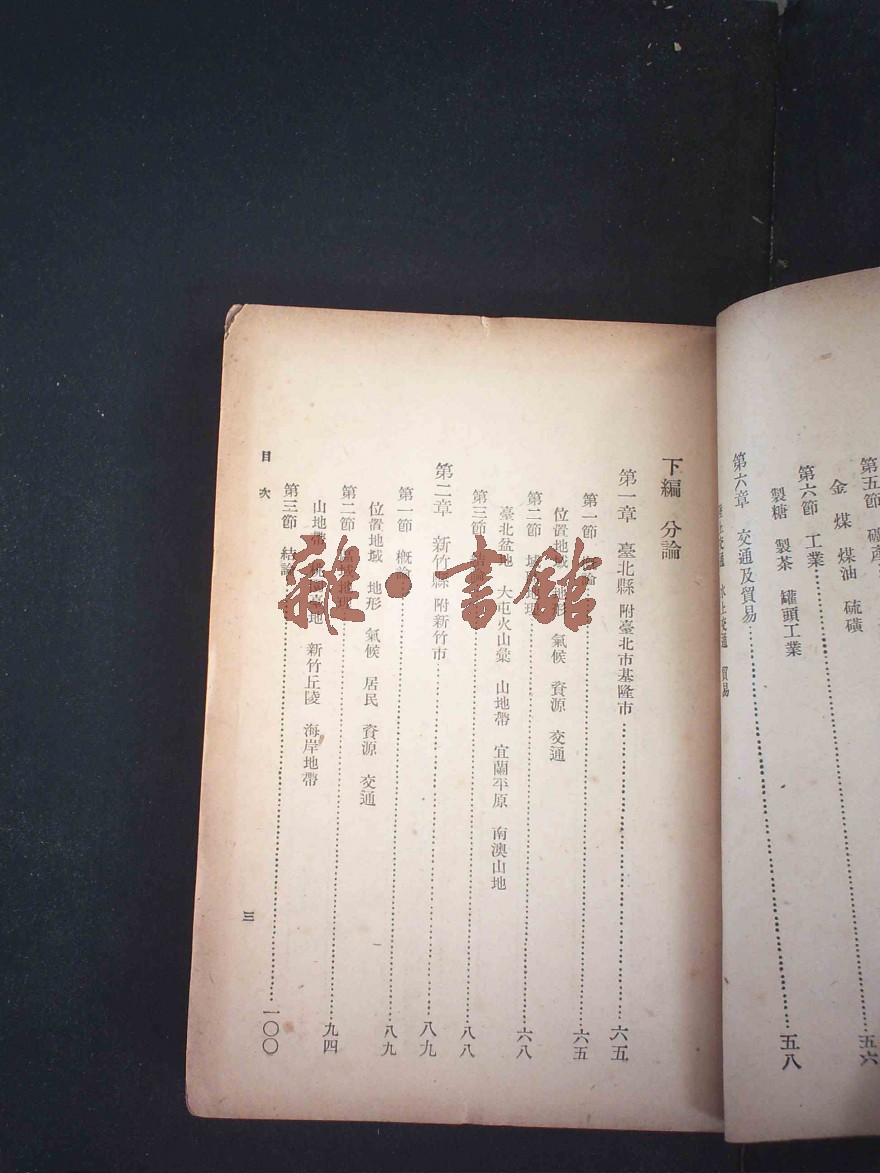 第五節 礦產
金 煤 煤油 硫磺
五六
第六節 工業
製糖 製茶 罐頭工業
第六章 交通及貿易 五八
水上交通 貿易
下編 分論
第一章 臺北縣 附臺北市基隆市 六五
第一節 六五
位置地域 地形 氣候 資源 交通
第二節 六八
臺北盆地 大屯火山彙 山地帶 宜蘭平原 南澳山地
第三節 結論 八八
第二章 新竹縣 附新竹市 八九
第一節 概論 八九
位置地域 地形 氣候 居民 資源 交通
第二節 地理 九四
山地帶 新竹丘陵 海岸地帶
第三節 結論 一〇〇
目次
三
雜·書館